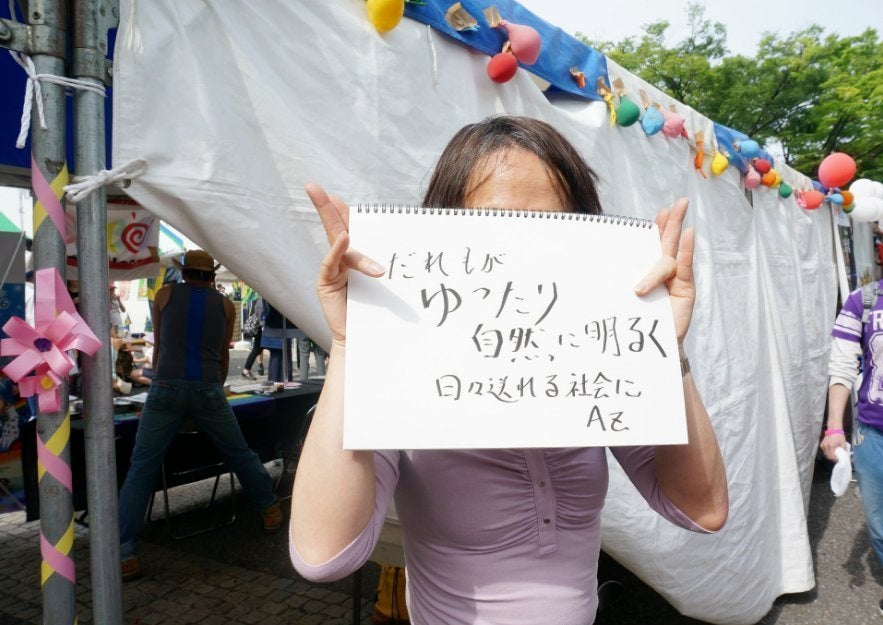 だれもが
ゆったり
自然に明るく
日々送れる社会に
AZ
FR